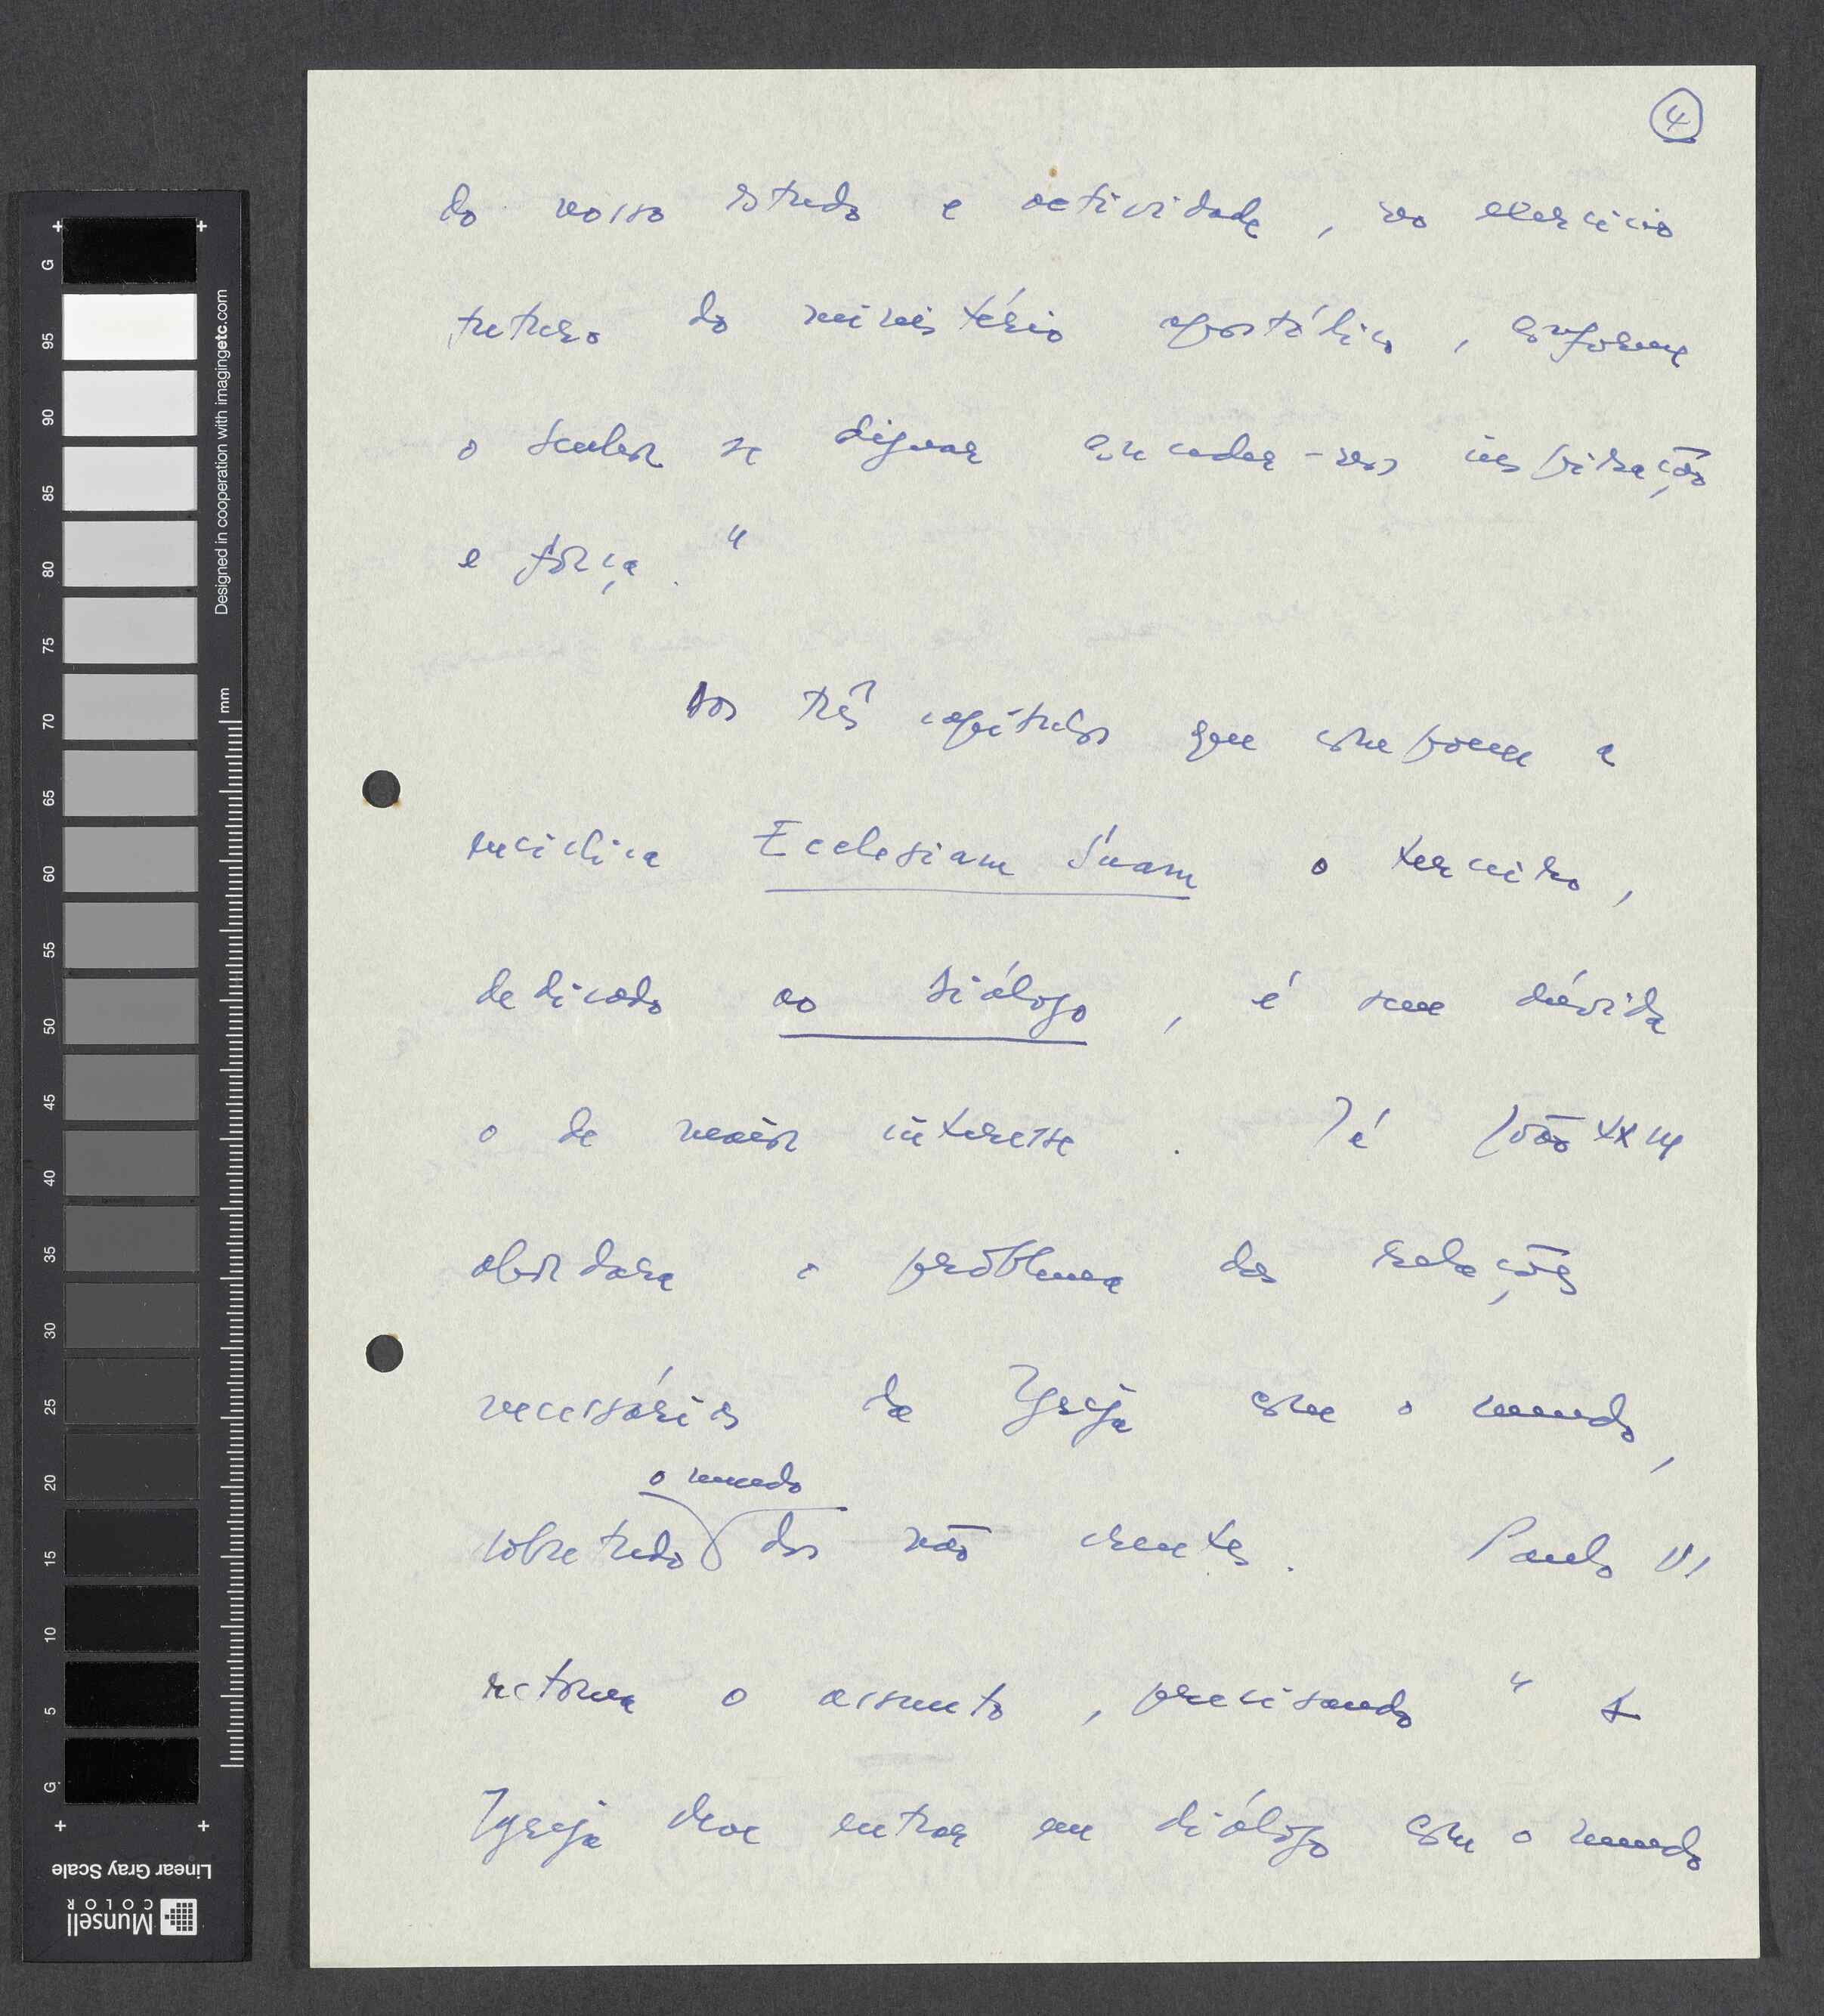 4
do nosso estudo e actividade, no exercício
futuro do ministério apostólico, conforme
o Senhor se dignar conceder-nos inspiração
e fôrça."
Dos três capítulos que compoem a
enciclica Ecclesiam Suam o terceiro,
dedicado ao diálogo, é sem dúvida
o de maior interesse. Já João XXIII
abordara o problema das relações
necessárias da Igreja com o mundo,
o mundo
sobretudo dos não crentes. Paulo VI
retoma o assunto, precisando " A
Igreja deve entrar em diálogo com o mundo
+ +
G
95
90
85
80
75
70
65
60
55
50
45
40
35
30
25
20
15
10
5
G
+ +
Designed in cooperation with imagingetc.com
mm
Linear Gray Scale
Munsell
COLOR